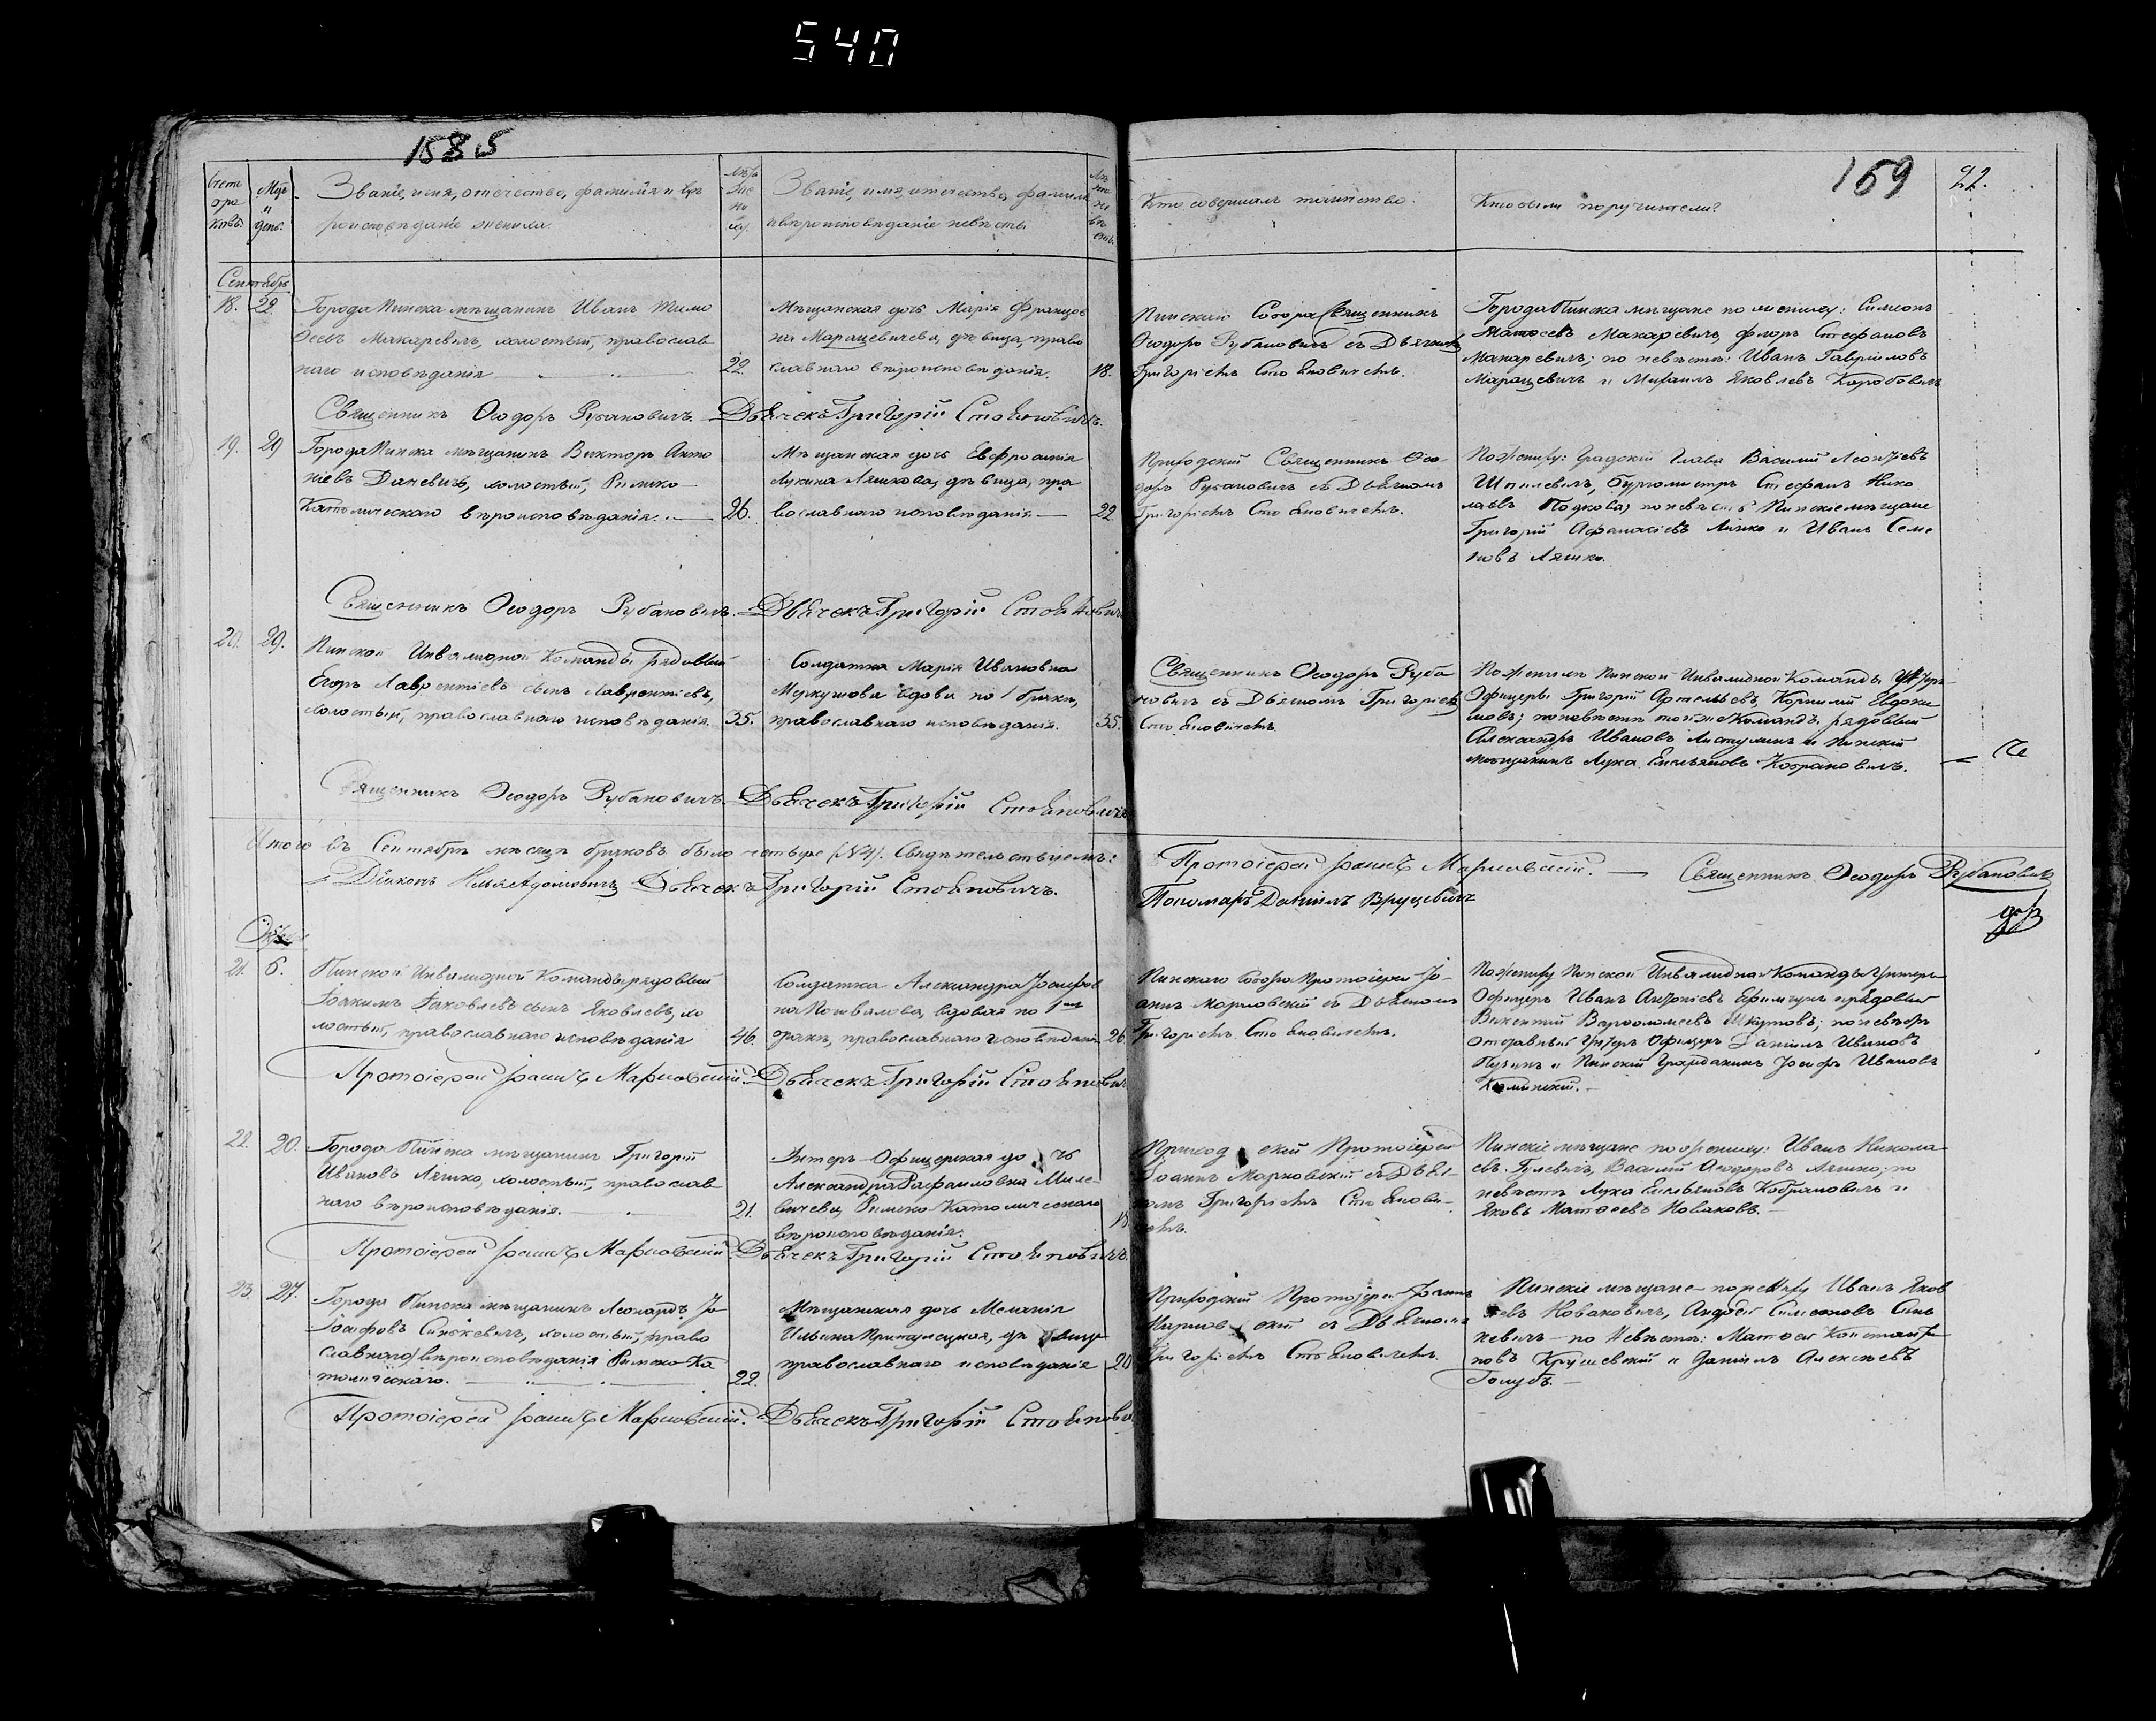 540
1885
169
22.
Счетъ
Мцъ
и
день.
Званіе, имя, отечество, фамилія и вѣ
роисповѣданіе жениха
Званіе, имя, отечество, фамилія
и вѣроисповѣданіе невѣсты
Кто совершалъ таинство.
Кто были поручители?
Сентябрь
18.
22.
Города Пинска мѣщанинъ Иванъ Тимо
ѳеевъ Макаревичъ, холостый, православ
наго исповѣданія
22.
Мѣщанская дочь Марія Францов
на Марацевичева, дѣвица, право
славнаго вѣроисповѣданія.
18.
Пинскаго Собора Священникъ
Ѳеодоръ Рубановичъ съ Дьячкомъ
Григоріемъ Стояновичемъ.
Города Пинска мѣщане по жениху: Симонъ
Матѳеевъ Макаревичъ, Флоръ Стефановъ
Макаревичъ; по невѣстѣ: Иванъ Гавріиловъ
Марацевичъ и Михаилъ Яковлевъ Коробовичъ
Священникъ Ѳеодоръ Рубановичъ. Дьячекъ Григорій Стояновичъ.
19.
29
Города Пинска мѣщанинъ Викторъ Анто
ніевъ Даневичъ, холостый, Римско
Католическаго вѣроисповѣданія.
26.
Мѣщанская дочь Евфросинія
Лукина Ляшкова, дѣвица, пра
вославнаго исповѣданія
22
Приходскій Священникъ Ѳео
доръ Рубановичъ съ Дьячкомъ
Григоріемъ Стояновичемъ.
По жениху: Градскій Глава Василій Леонтіевъ
Шпилевичъ, Бургомистръ Стефанъ Нико
лаевъ Подкова; по невѣстѣ Пинскіе мѣщане
Григорій Афанасіевъ Ляшко и Иванъ Семе
новъ Ляшко.
Священникъ Ѳеодоръ Рубановичъ. Дьячекъ Григорій Стояновичъ
20.
29.
Пинской Инвалидной Команды рядовый
Егоръ Лаврентіевъ сынъ Лаврентіевъ,
холостый, православнаго исповѣданія.
35.
Солдатка Марія Ивановна
Меркушова вдова по 1 бракѣ,
православнаго исповѣданія.
35.
Священникъ Ѳеодоръ Руба
новичъ съ Дьячкомъ Григоріемъ
Стояновичемъ.
По жениху Пинской Инвалидной Команды Унтеръ
Офицеры Григорій Артемьевъ, Корнилій Евдоки
мовъ; по невѣстѣ той же Команды рядовый
Александръ Ивановъ и Пинскій
мѣщанинъ Лука Емельяновъ Кобрановичъ.
Священникъ Ѳеодоръ Рубановичъ. Дьячекъ Григорій Стояновичъ
Итого въ Сентябрѣ мѣсяцѣ браковъ было четыре (№4). Свидѣтельствуемъ:
Протоіерей Іоаннъ Марковскій. — Священникъ Ѳеодоръ Рубановичъ
Діаконъ Илья Дьячекъ Григорій Стояновичъ.
Пономарь Даніилъ Вруцевичъ
21.
6.
Пинской Инвалидной Команды рядовый
Іоакимъ Яковлевъ сынъ Яковлевъ, хо
лостый, православнаго исповѣданія
46.
Солдатка Александра Іосифов
на вдовая по 1мъ
бракѣ, православнаго исповѣданія
26
Пинскаго Собора Протоіерей Іо-
аннъ Марковскій съ Дьячкомъ
Григоріемъ Стояновичемъ.
По жениху Пинской Инвалидной Команды Унтеръ
Офицеръ Иванъ Антоніевъ Ефимчукъ и рядовый
Викентій Варѳоломеевъ Шкутовъ; по невѣстѣ
отставный Унтеръ Офицеръ Даніилъ Ивановъ
и Пинскій Гражданинъ Іосифъ Ивановъ
Каминскій.
Протоіерей Іоаннъ Марковскій. Дьячекъ Григорій Стояновичъ
22.
20.
Города Пинска мѣщанинъ Григорій
Ивановъ Ляшко, холостый, православ
наго вѣроисповѣданія.
21.
Унтеръ-Офицерская дочь
Александра Рафаиловна Миле-
вичева Римско-Католическаго
вѣроисповѣданія.
18
Приходскій Протоіерей
Іоаннъ Марковскій съ Дьяч-
комъ Григоріемъ Стоянови-
чемъ.
Пинскіе мѣщане по жениху: Иванъ Никола
евъ Гулевичъ, Василій Ѳеодоровъ Ляшко; по
невѣстѣ Лука Емельяновъ Кобрановичъ и
Яковъ Матѳеевъ Новаковъ.
Протоіерей Іоаннъ Марковскій. Дьячекъ Григорій Стояновичъ.
23.
27.
Города Пинска мѣщанинъ Леонардъ Іо
Іосифовъ Синкевичъ, холостый, право
славнаго вѣроисповѣданія Римско-Ка
толическаго.
22.
Мѣщанская дочь Меланія
Ильина дѣвица
православнаго исповѣданія
20
Приходскій Протоіерей Іоаннъ
Марковскій съ Дьячкомъ
Григоріемъ Стояновичемъ.
Пинскіе мѣщане по жениху Иванъ Яков
левъ Новаковичъ, Андрей Симеоновъ Син
кевичъ – по невѣстѣ: Матѳей Константи
новъ Крушевскій и Даніилъ Алексѣевъ
Голубъ.
Протоіерей Іоаннъ Марковскій. Дьячекъ Григорій Стоянови